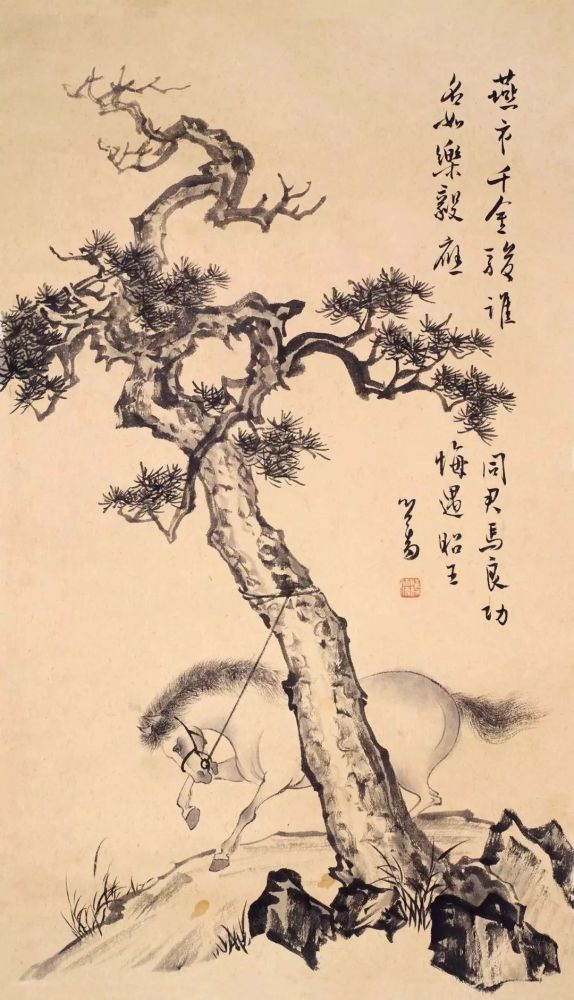 燕市千金駿誰同君馬良功
名如樂毅應悔遇昭王
心畬